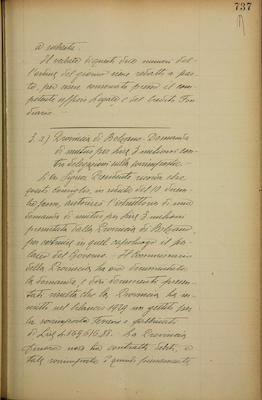 737
a
Il verbale di questi due numeri del-
l'ordine del giorno viene redatto a par-
te, per essere conservato presso il com-
petente ufficio Legale e del Credito Fon-
diario.
3. a) Provincia di Bolzano. Domanda
di mutuo per Lire 3 milioni con-
tro delegazioni sulla sovrimposta.
Il Signor Presidente ricorda che
questo Consiglio, in seduta del 10 dicem-
bre, autorizzò l'istruttoria di una
domanda di mutuo per Lire 3 milioni
presentata dalla Provincia di Bolzano
per costruire in quel capoluogo il pa-
lazzo del Governo. Il Commissario
della Provincia ha ora
la domanda, e dai documenti presen-
tati risulta che la Provincia ha in-
scritto nel bilancio 1929 un gettito per
la sovrimposta terreni e fabbricati
di Lire 4.869.616.88. La Provincia
finora non ha contratto debiti, e
tale sovrimposta è quindi